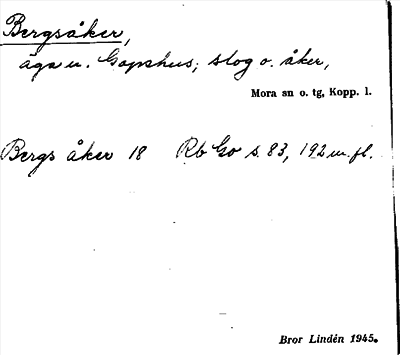 Bergsåker,
äga u. Gopshus; slog o. åker,
Mora sn o. tg, Kopp. l.
Bergs åker 18 Rb Go s. 83, 192 m. fl.
Bror Lindén 1945.